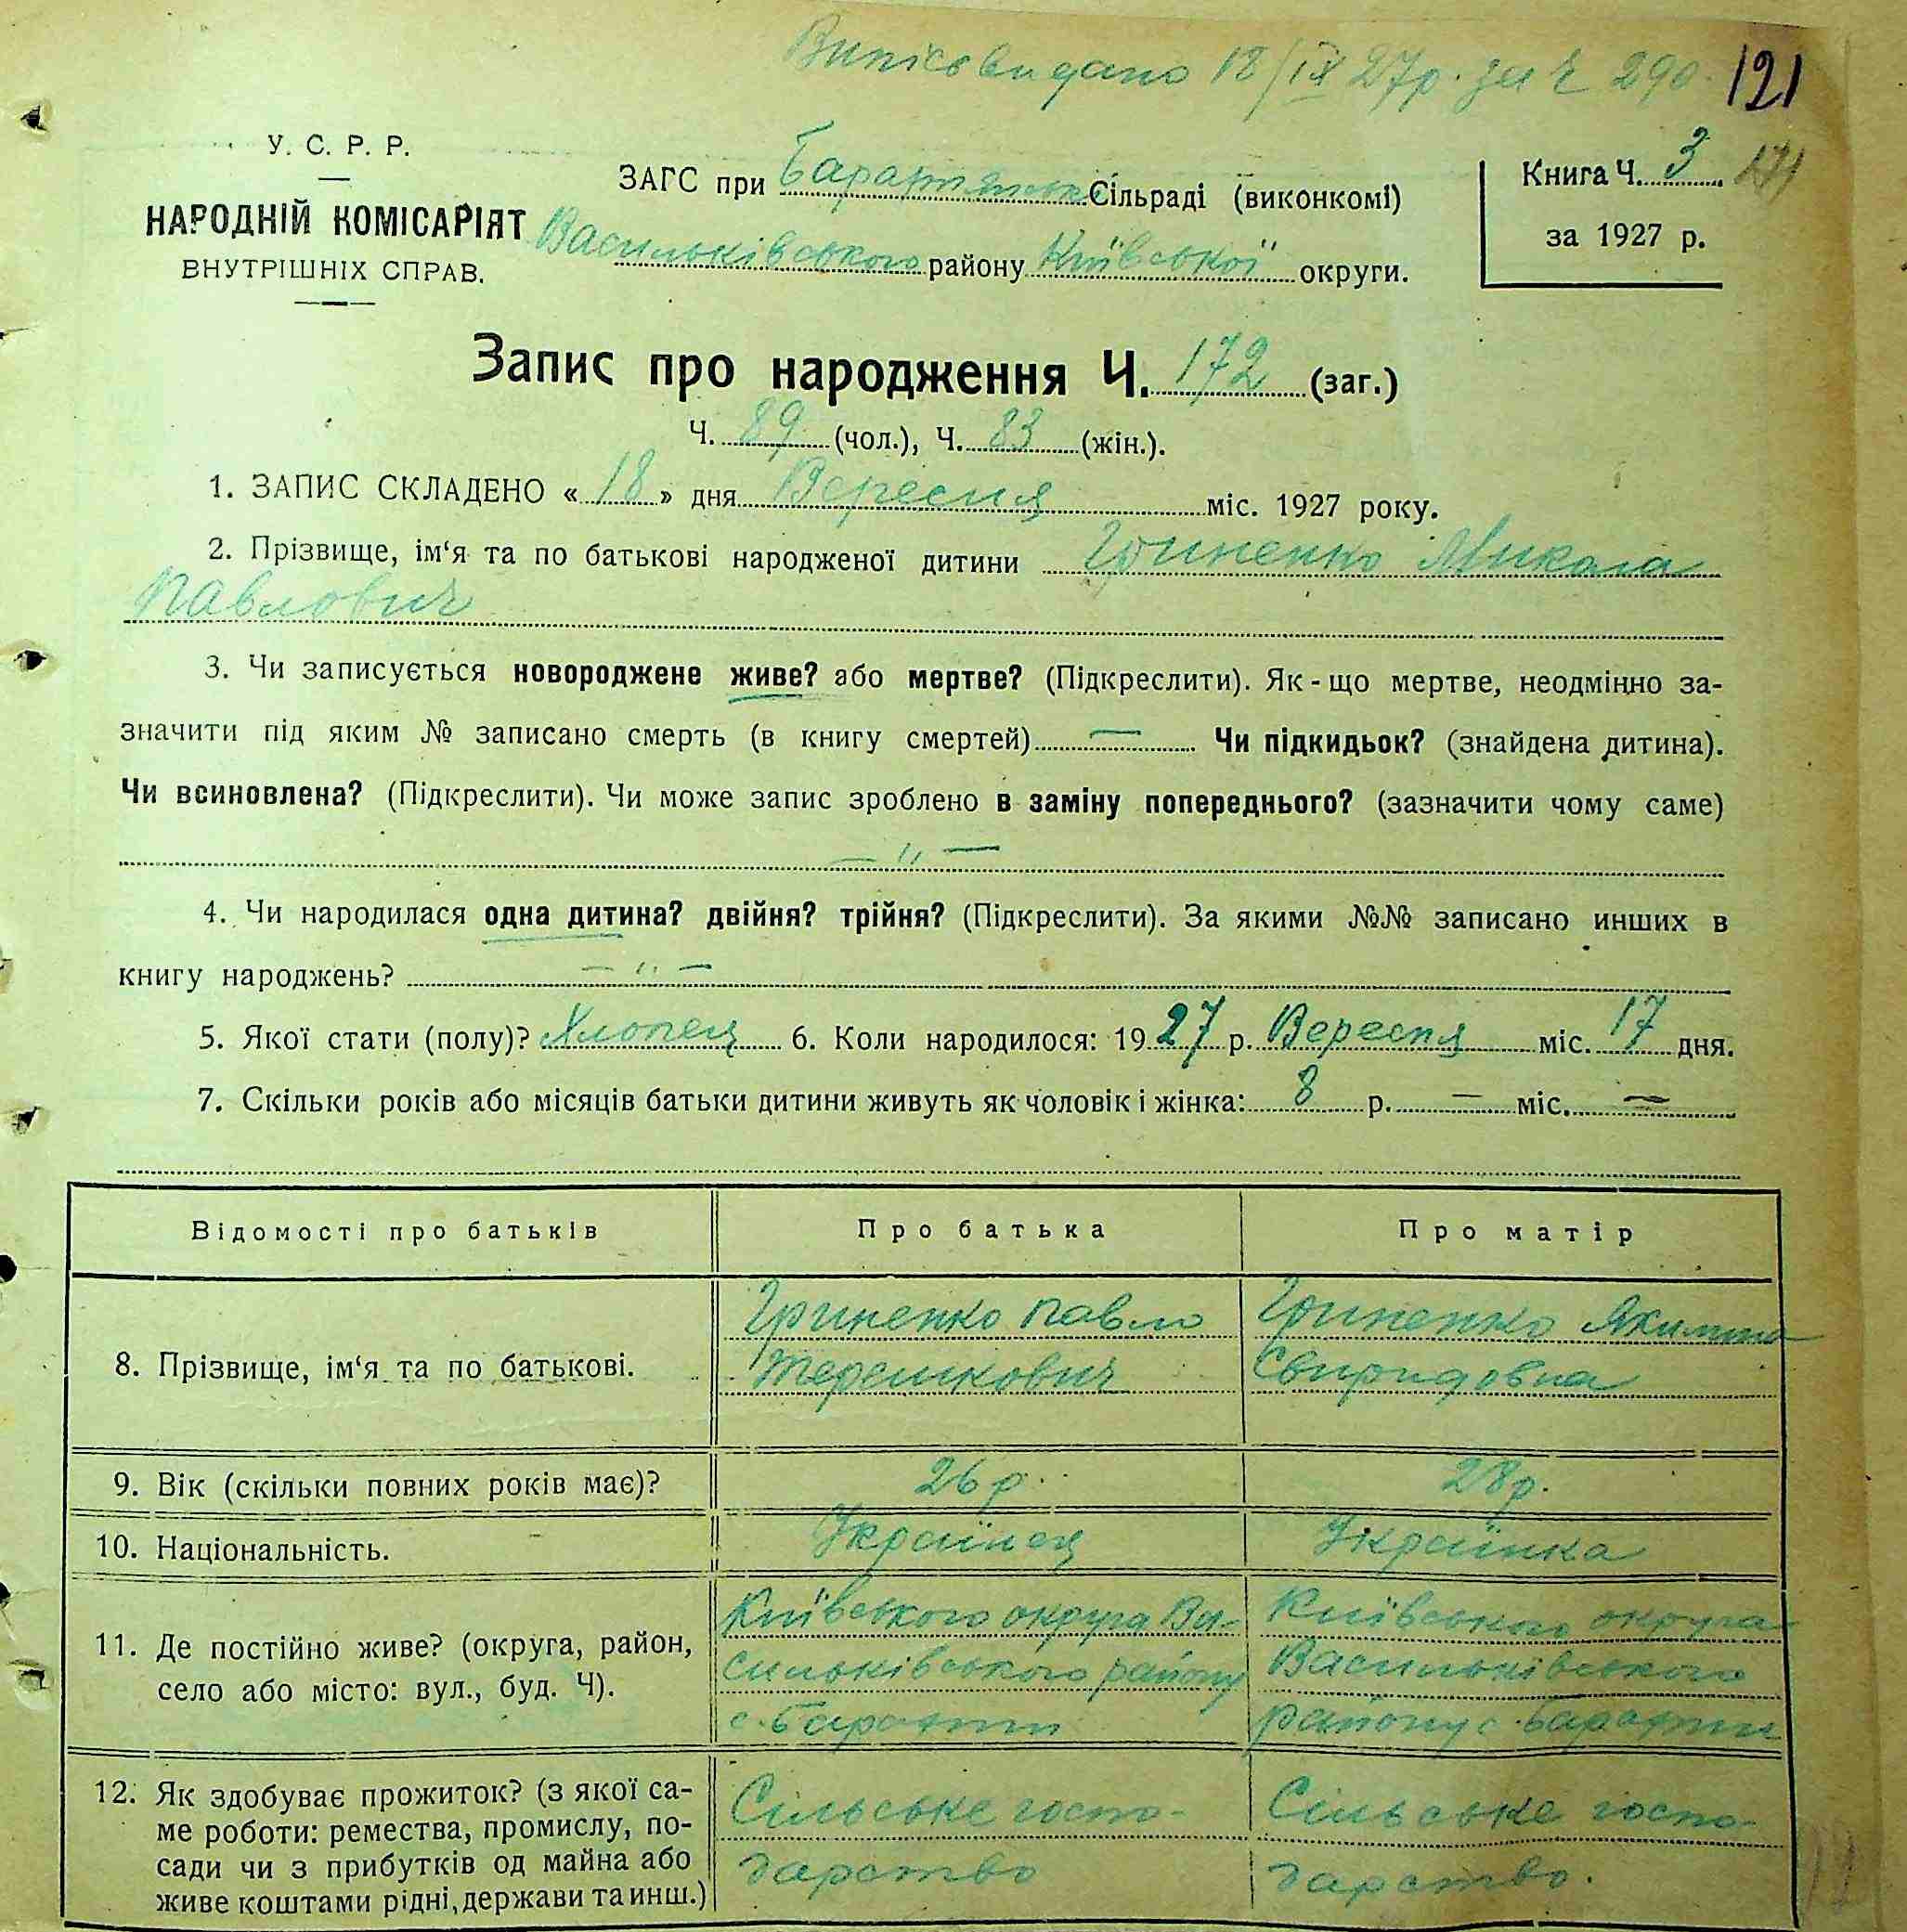 Випись видано 18/IX 27р. за Ч 290. 121
У. С. Р. Р.
НАРОДНІЙ КОМІСАРІЯТ
ВНУТРІШНІХ СПРАВ.
ЗАГС при Сільраді (виконкомі)
Васильківського району Київської округи.
Книга Ч. 3 171
за 1927 р.
Запис про народження Ч. 172 (заг.)
Ч. 89 (чол.), Ч. 83 (жін.).
1. ЗАПИС СКЛАДЕНО « 18 » дня Вересня міс. 1927 року.
2. Прізвище, ім‘я та по батькові народженої дитини Гриненко Микола
Павлович
3. Чи записується новороджене живе? або мертве? (Підкреслити). Як-що мертве, неодмінно за-
значити під яким № записано смерть (в книгу смертей) — Чи підкидьок? (знайдена дитина).
Чи всиновлена? (Підкреслити). Чи може запис зроблено в заміну попереднього? (зазначити чому саме)
— „ —
4. Чи народилася одна дитина? двійня? трійня? (Підкреслити). За якими №№ записано инших в
книгу народжень? — „ —
5. Якої стати (полу)? Хлопец 6. Коли народилося: 1927 р. Вересня міс. 17 дня.
7. Скільки років або місяців батьки дитини живуть як чоловік і жінка: 8 р. — міс. —
Відомості про батьків Про батька Про матір
8. Прізвище, ім‘я та по батькові.
Гриненко Павло
Терешкович
Гриненко Якилина
Свиридовна
9. Вік (скільки повних років має)? 26 р. 28 р.
10. Національність. Українец Українка
11. Де постійно живе? (округа, район,
село або місто: вул., буд. Ч).
Київського округа Ва-
сильківського району
с. Барахти
Київського округа
Васильківського
району с. Барахти
12. Як здобуває прожиток? (з якої са-
ме роботи: ремества, промислу, по-
сади чи з прибутків од майна або
живе коштами рідні, держави та инш.)
Сільське госпо-
дарство
Сільське госпо-
дарство.